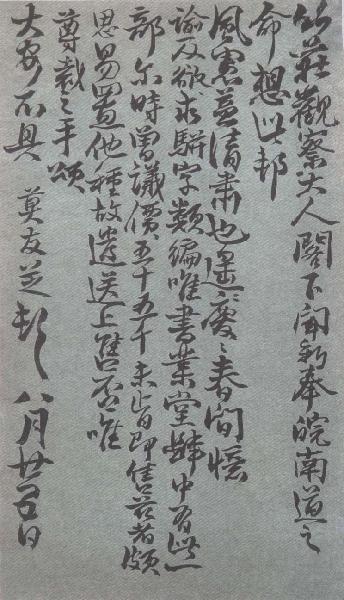 竹莊觀察大人閣下聞新奉皖南道之
命想此邦
風憲益清肅也遥慶々春間憶
諭及欲求駢字類編唯書業堂肆中有此一
部尔時曾議價五十五千未肯即售兹者頗
思易置他種故遣送上售否唯
尊裁之手頌
大安不具 莫友芝頓 八月廿五日